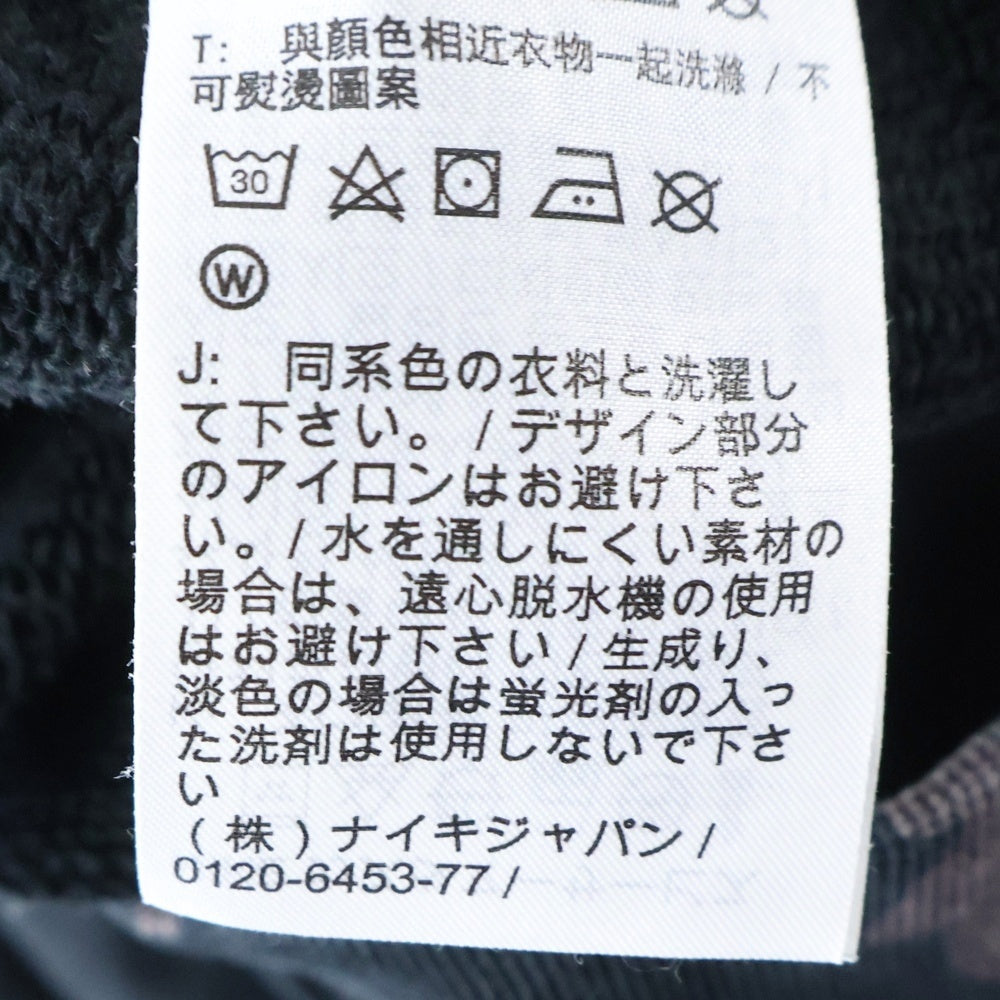 T: 與顏色相近衣物一起洗滌 / 不
可熨燙圖案
30
W
J: 同系色の衣料と洗濯し
て下さい。 / デザイン部分
のアイロンはお避け下さ
い。 / 水を通しにくい素材の
場合は、遠心脱水機の使用
はお避け下さい / 生成り、
淡色の場合は蛍光剤の入っ
た洗剤は使用しないで下さ
い
(株)ナイキジャパン /
0120-6453-77 /